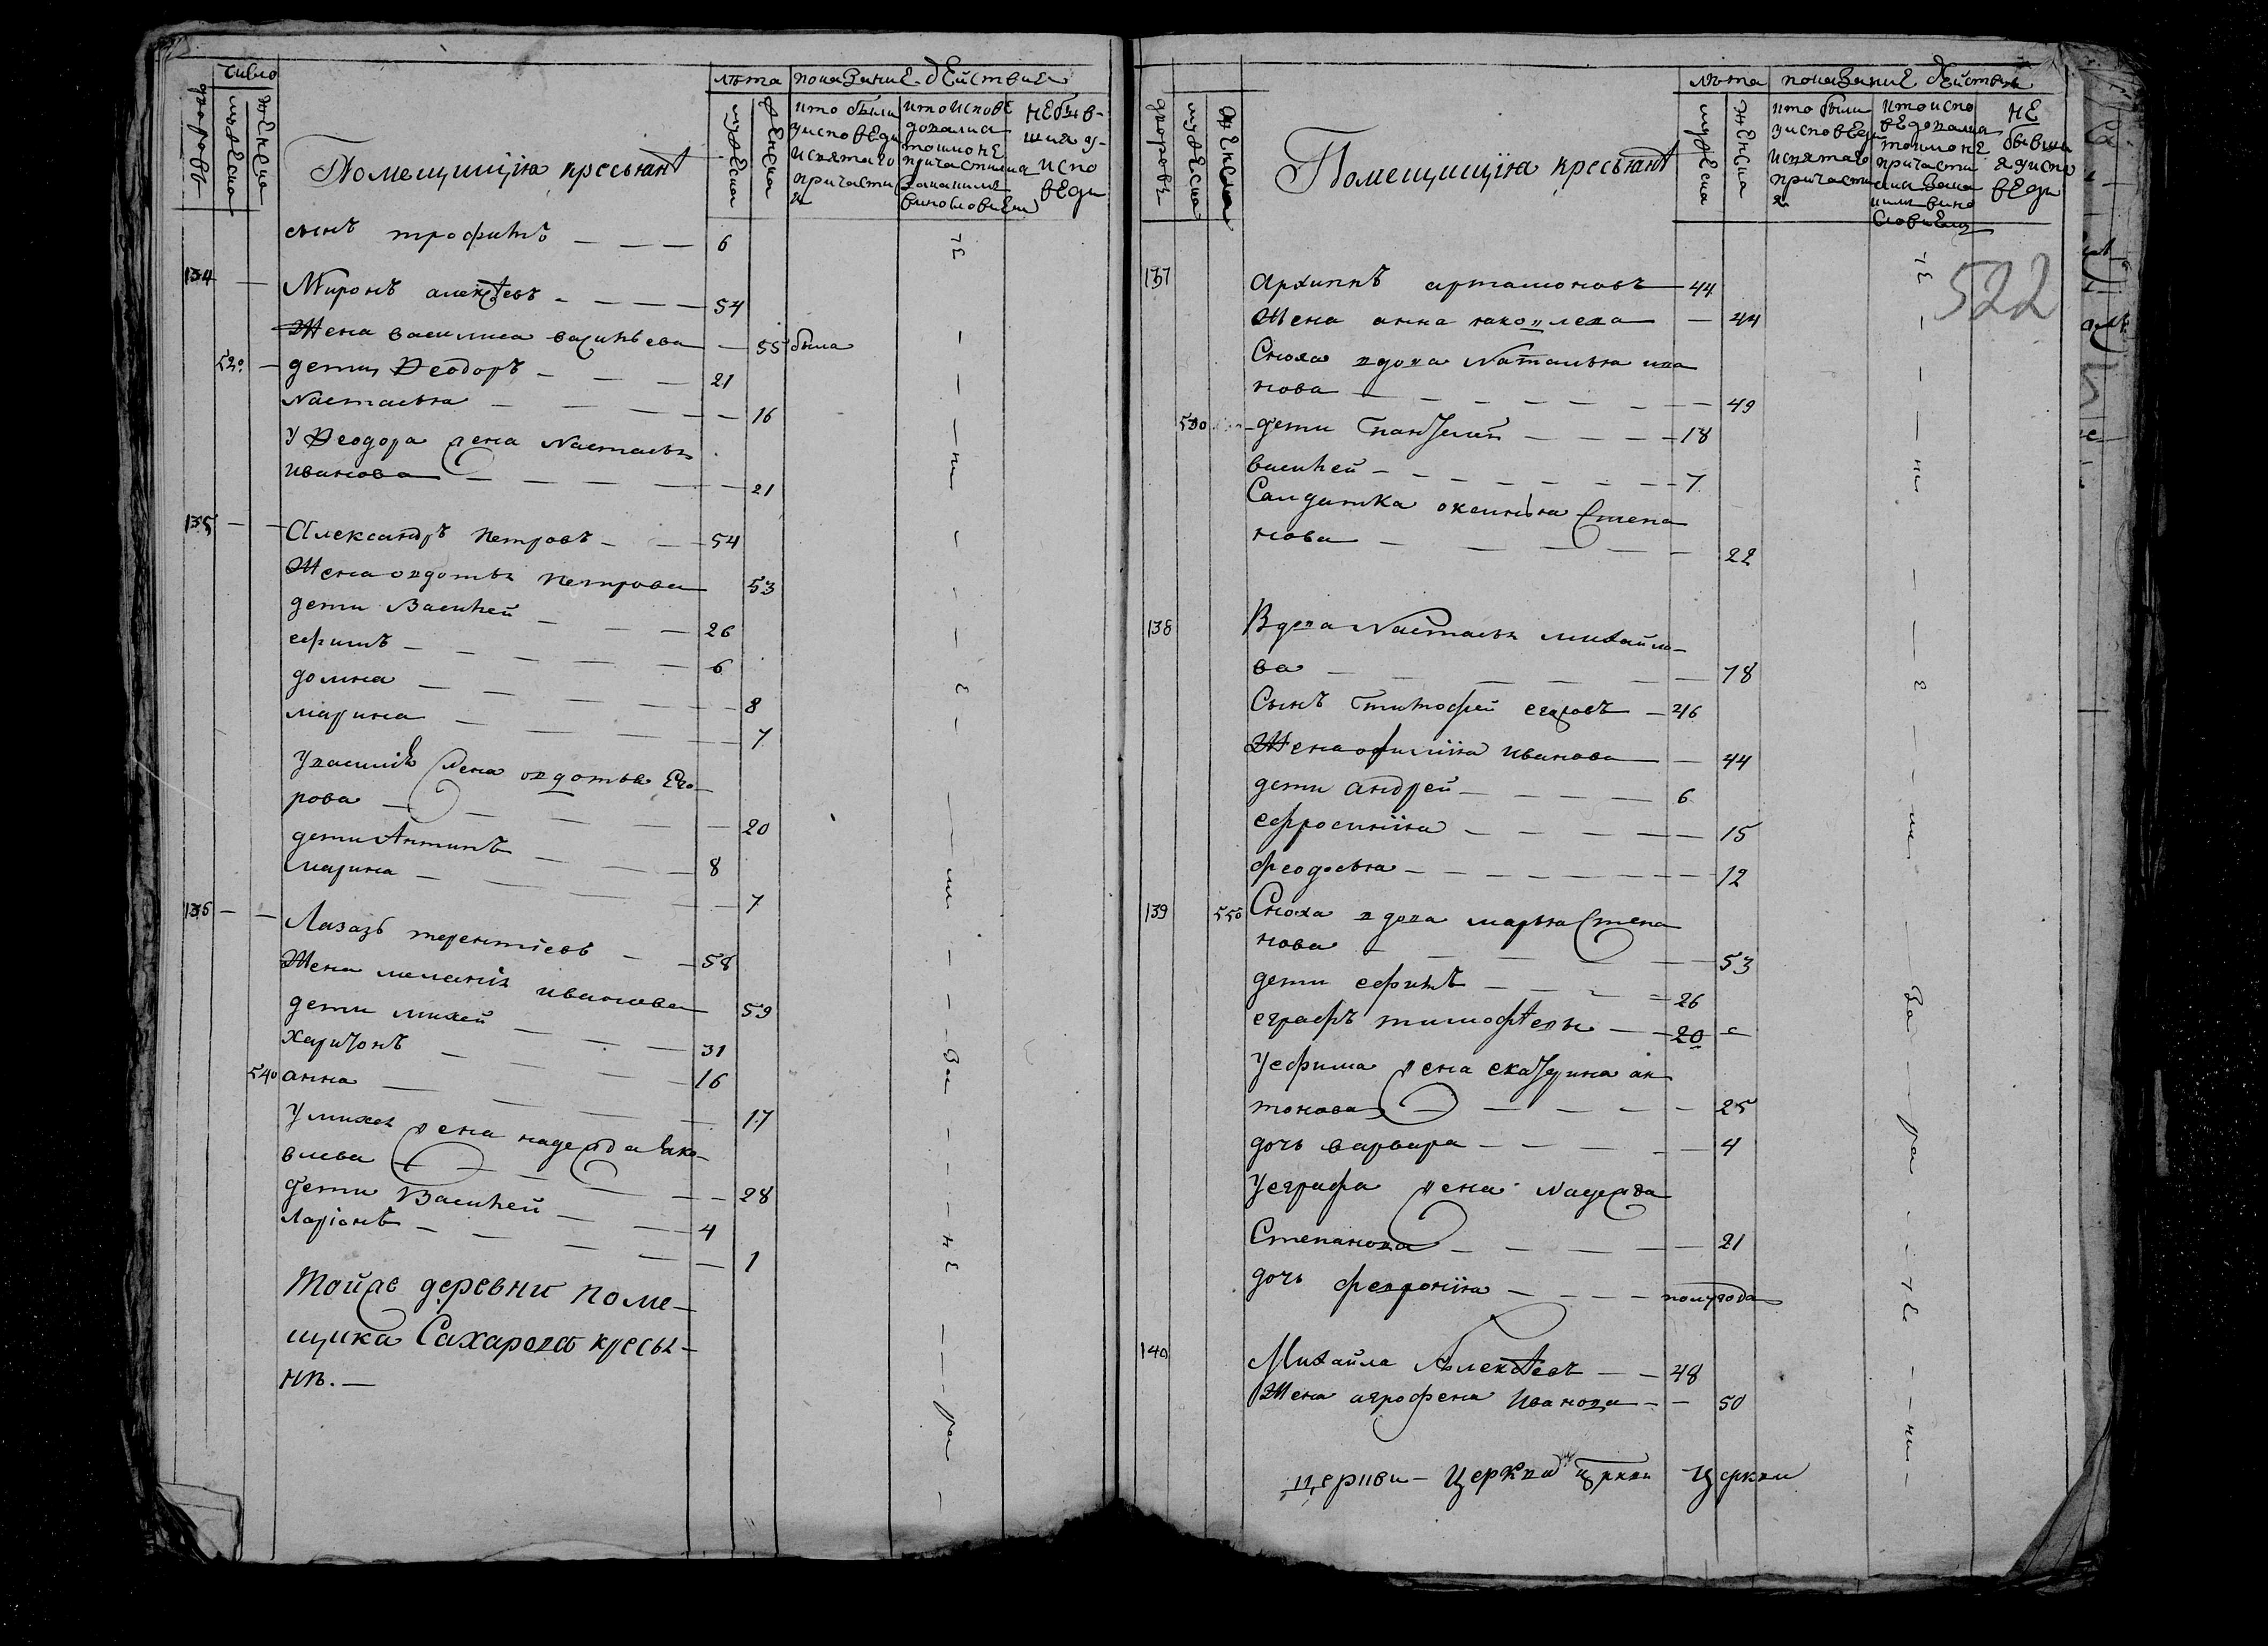 число
дворовъ
мужеска
женска
Помещищїя кресьянѣ
лѣта
показание действиѣ
мужеска
женска
кто были
у исповеди
и святаго
причасти
я
кто испове
довалися
тошмо не
причастилися
за какимъ
винословием
не быв-
шия у
испо
веди
сынъ трофимъ — — — 6
134 — Миронъ алексѣевъ — — — 54
Жена василиса васильева — 55 была
520 — дети Ѳеодоръ — — — 21
Настасья — — — — 16
У Ѳеодора жена Настасья
иванова — — — — 21
135 — — Александръ петровъ — — 54
Жена овдотья петрова 53
дети Василей — — — 26
ефимъ — — — — — 6
домна — — — — — 8
марина — — — — — 7
У василья жена овдотья Его-
рова — — — — — 20
дети Антипъ — — — 8
марина — — — — — 7
136 — — Лазарь терентїевъ — — 58
Жена меланїя иванова 59
дети михей — — — 31
харитонъ — — — — 16
540 анна — — — — 17
У михея жена надежда Яко-
влева — — — — — 28
дети Василей — — — 4
Ларїонъ — — — — — 1
Тойже деревни поме-
щика Сахарова кресья-
нѣ. —
дворовъ
мужеска
женска
Помещищїя кресьянѣ
лѣта
показание действия
мужеска
женска
кто были
у исповеди
и святаго
причасти
я
кто испо
ведовался
тошмо не
причасти
лися за ка
кимъ вино
словием
не
бывши
я у испо
веди
522
137 архиппъ артамоновъ — 44
Жена анна яковлева — 44
Сноха вдова Наталья ива
нова — — — — — — 49
530 — дети Пантелей — — — 18
василей — — — — — — 7
Салдатка оксинья Степа
нова — — — — — 22
138 Вдова Настасья михайло-
ва — — — — — 78
Сынъ Тимофей егоровъ — 46
Жена офимїя иванова — 44
дети андрей — — — — 6
ефросинїя — — — — — 15
феодосья — — — — — — 12
139 550 Сноха вдова марья Степа
нова — — — — — 53
дети ефимъ — — — 26
еграфъ тимофеевы — — 20
У ефима жена екатерина ан
тонова — — — — — 25
дочь варвара — — — — 4
У еграфа жена Надежда
Степанова — — — — 21
дочь феврoнїя — — — — полугода
140 Михайла Алексѣевъ — — 48
Жена агрофена Иванова — — 50
церкви — Церкви цркви Церкви